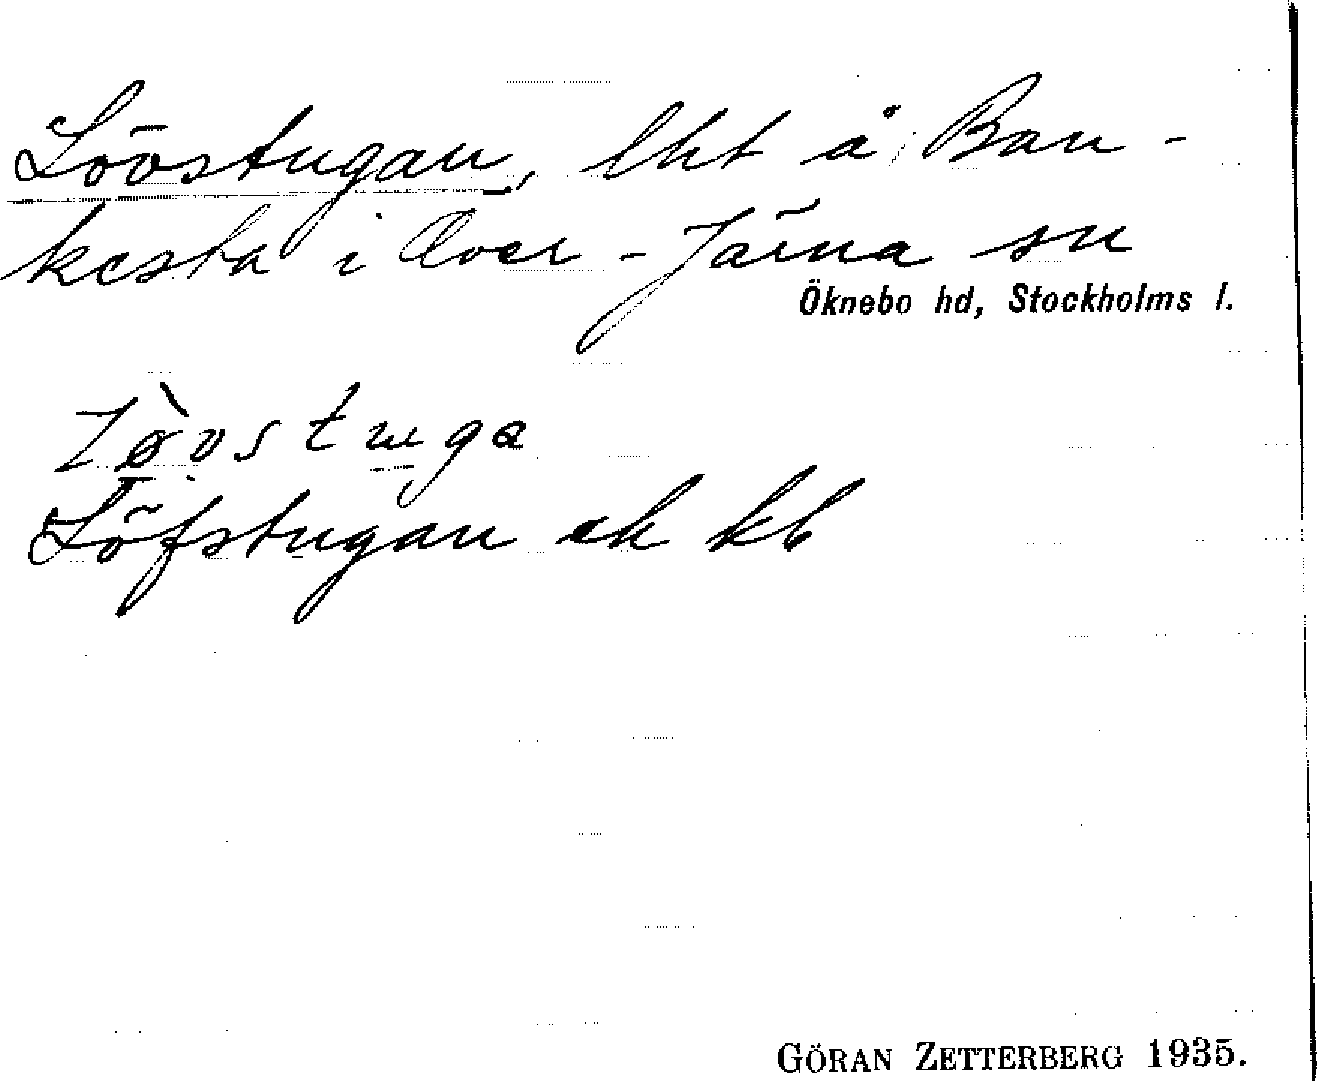 Lövstugan, lht å Ban-
kesta i Över-Järna sn
Öknebo hd, Stockholms l.
lø̀vstuga
Löfstugan ek kb
GÖRAN ZETTERBERG 1935.